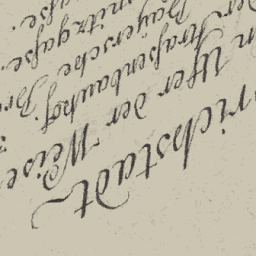 richstadt
n Ufer der Weise
der Straßenbauhof.
Bayersche
nitzgaße.